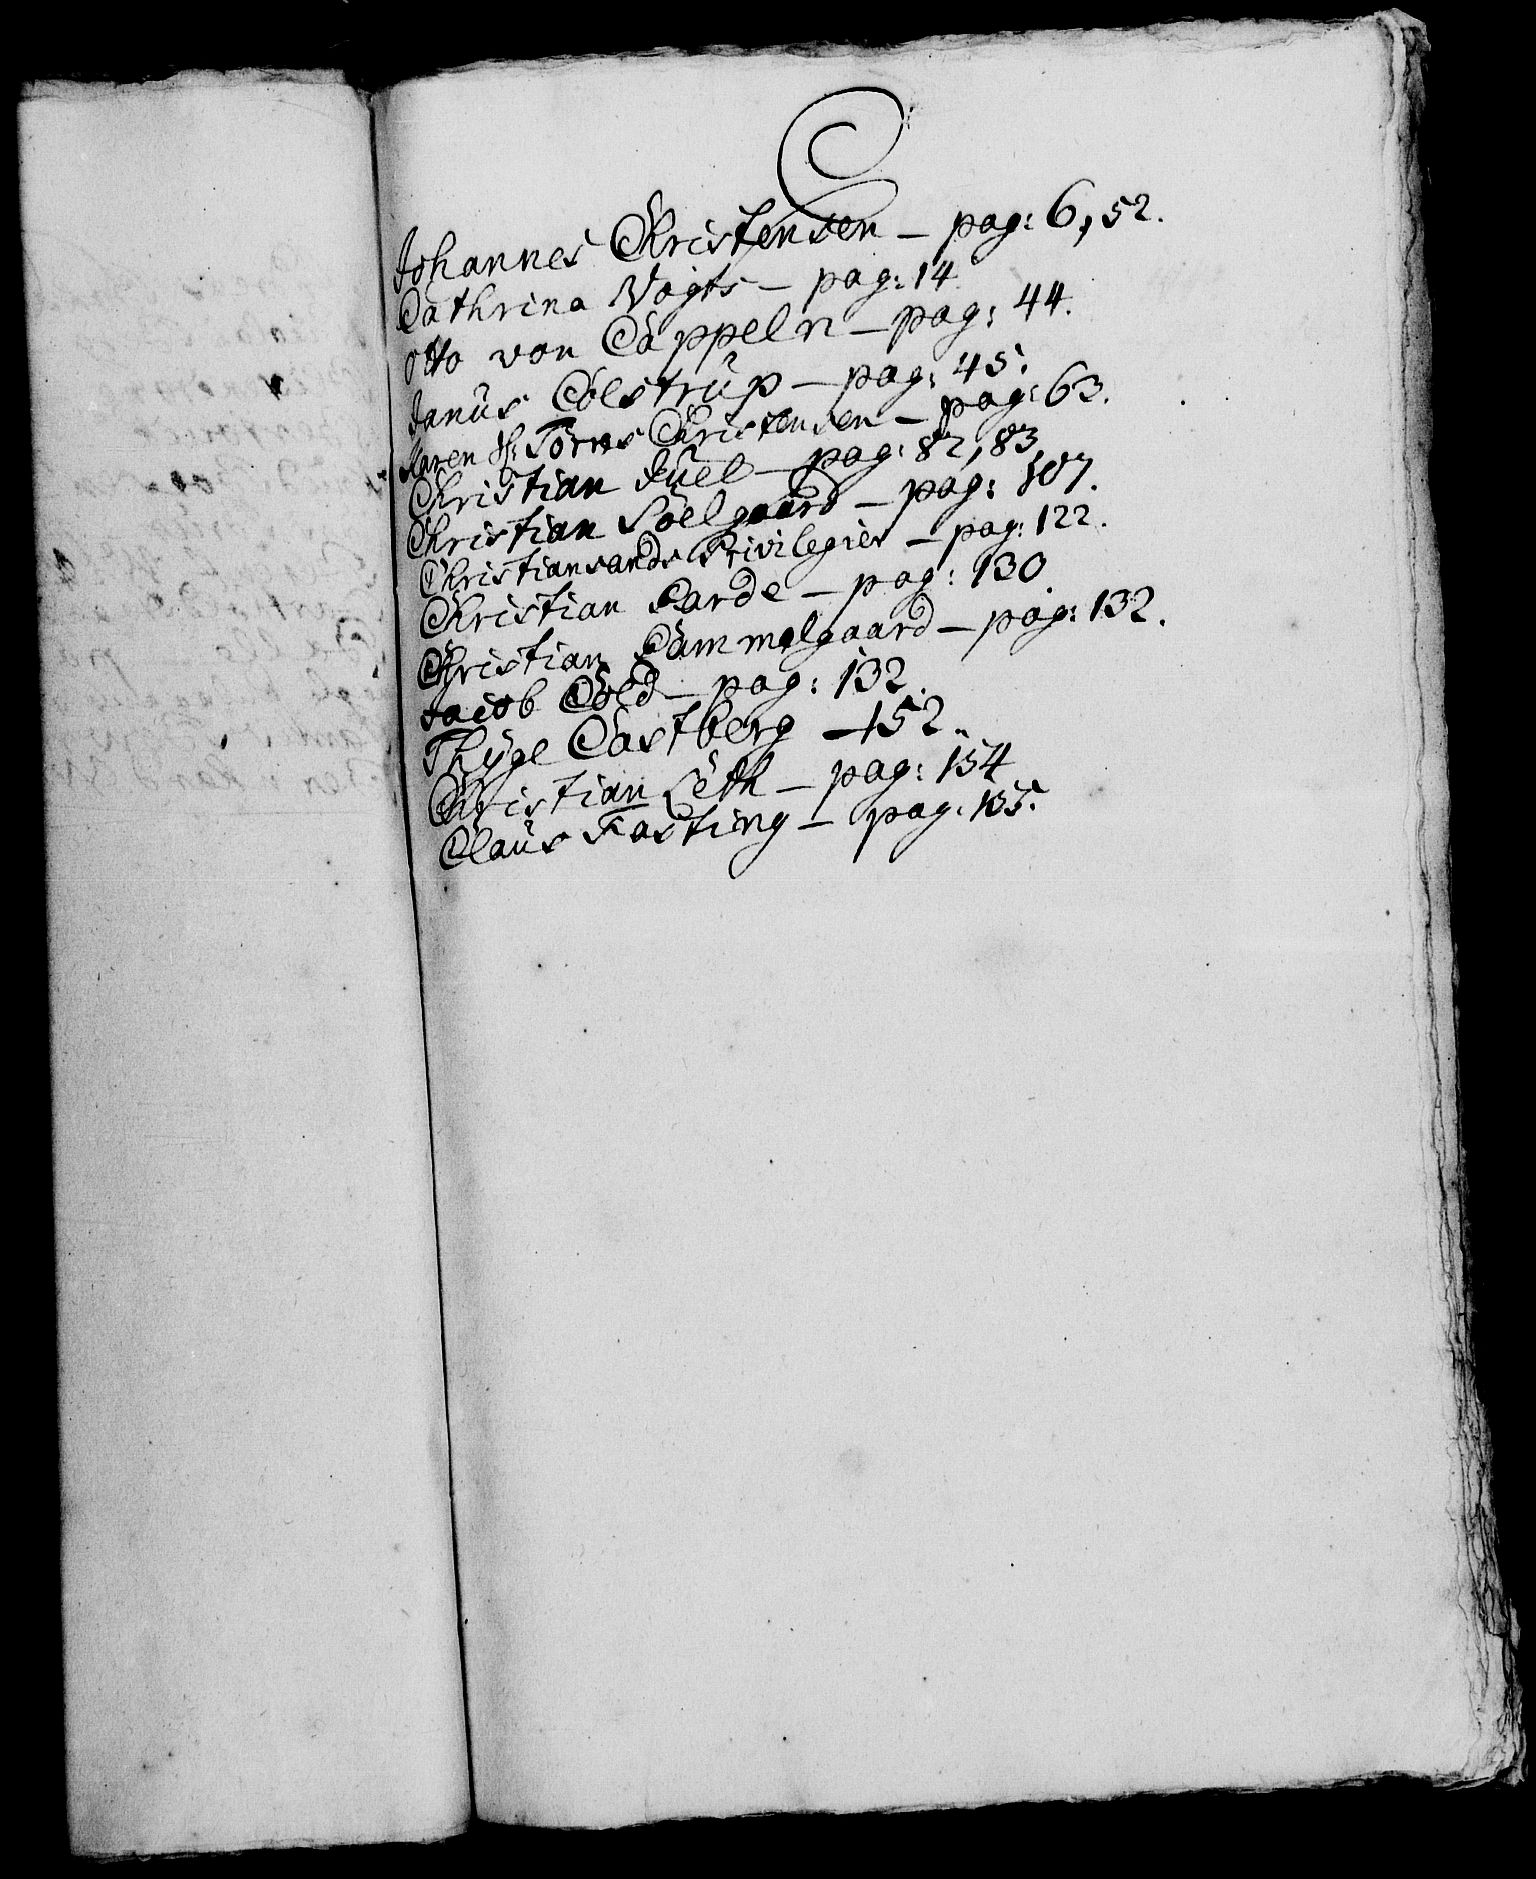 C
Johannes Christensen – pag: 6, 52.
Cathrina Vogts – pag: 14
Otto von Cappeln – pag: 44.
Janus Colstrup – pag: 45.
Karen Christensen – pag: 63.
Christian Juel – pag: 82, 83
Christian Söelgaard – pag: 107.
Christiansands Privilegier – pag: 122.
Christian – pag: 130
Christian Cammelgaard – pag: 132.
Jacob Cold – pag: 132.
Thyge Castberg – 152.
Christian Leth – pag: 154
Claus Fasting – pag: 155.